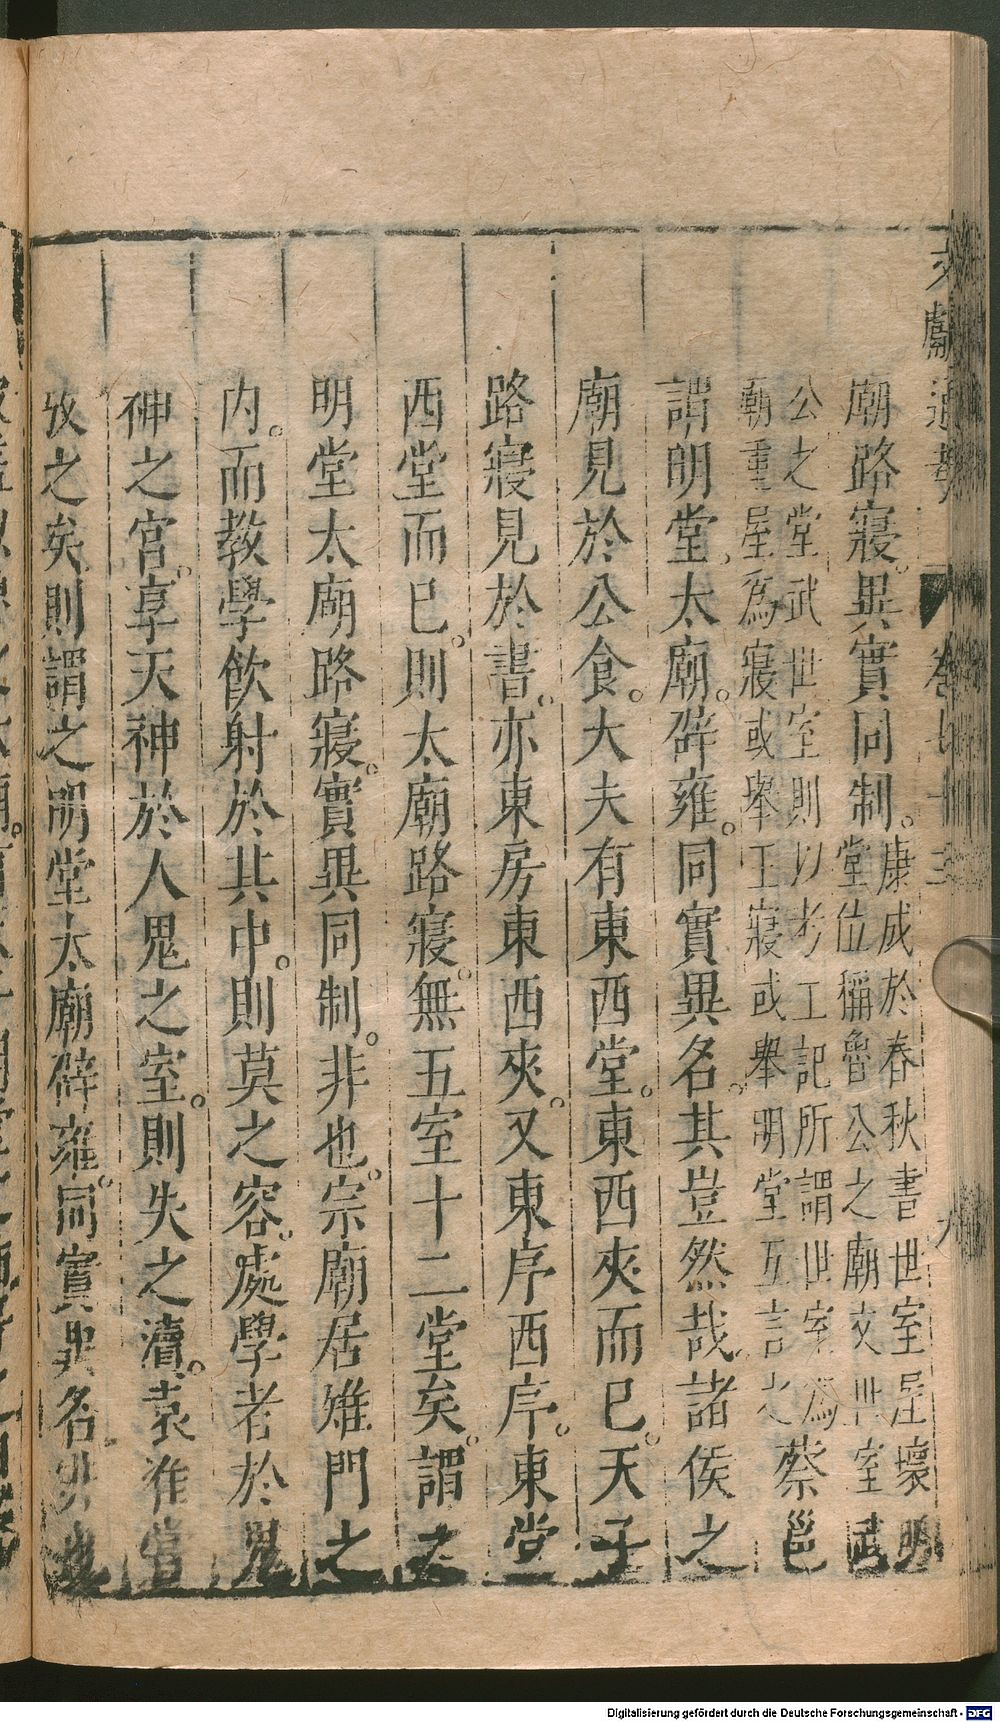 文獻通攷 卷七十三 九
廟路寢異實同制。康成於春秋書世室屋壞明
堂位稱魯公之廟文世室武
公之堂武世室則以考工記所謂世室為
廟重屋爲寢或舉王寢或舉明堂互言之蔡邕
謂明堂太廟。辟雍。同實異名。其豈然哉諸侯之
廟見於公食。大夫有東西堂。東西夾而已。天子
路寢見於書。亦東房東西夾。又東序西序。東堂
西堂而已。則太廟路寢。無五室十二堂矣。謂之
明堂太廟路寢。實異同制。非也。宗廟居雉門之
内。而教學飲射於其中。則莫之容。處學者於鬼
神之宮。享天神於人鬼之室。則失之瀆。袁准嘗
攷之矣。則謂之明堂太廟辟雍。同實異名
Digitalisierung gefördert durch die Deutsche Forschungsgemeinschaft - DFG